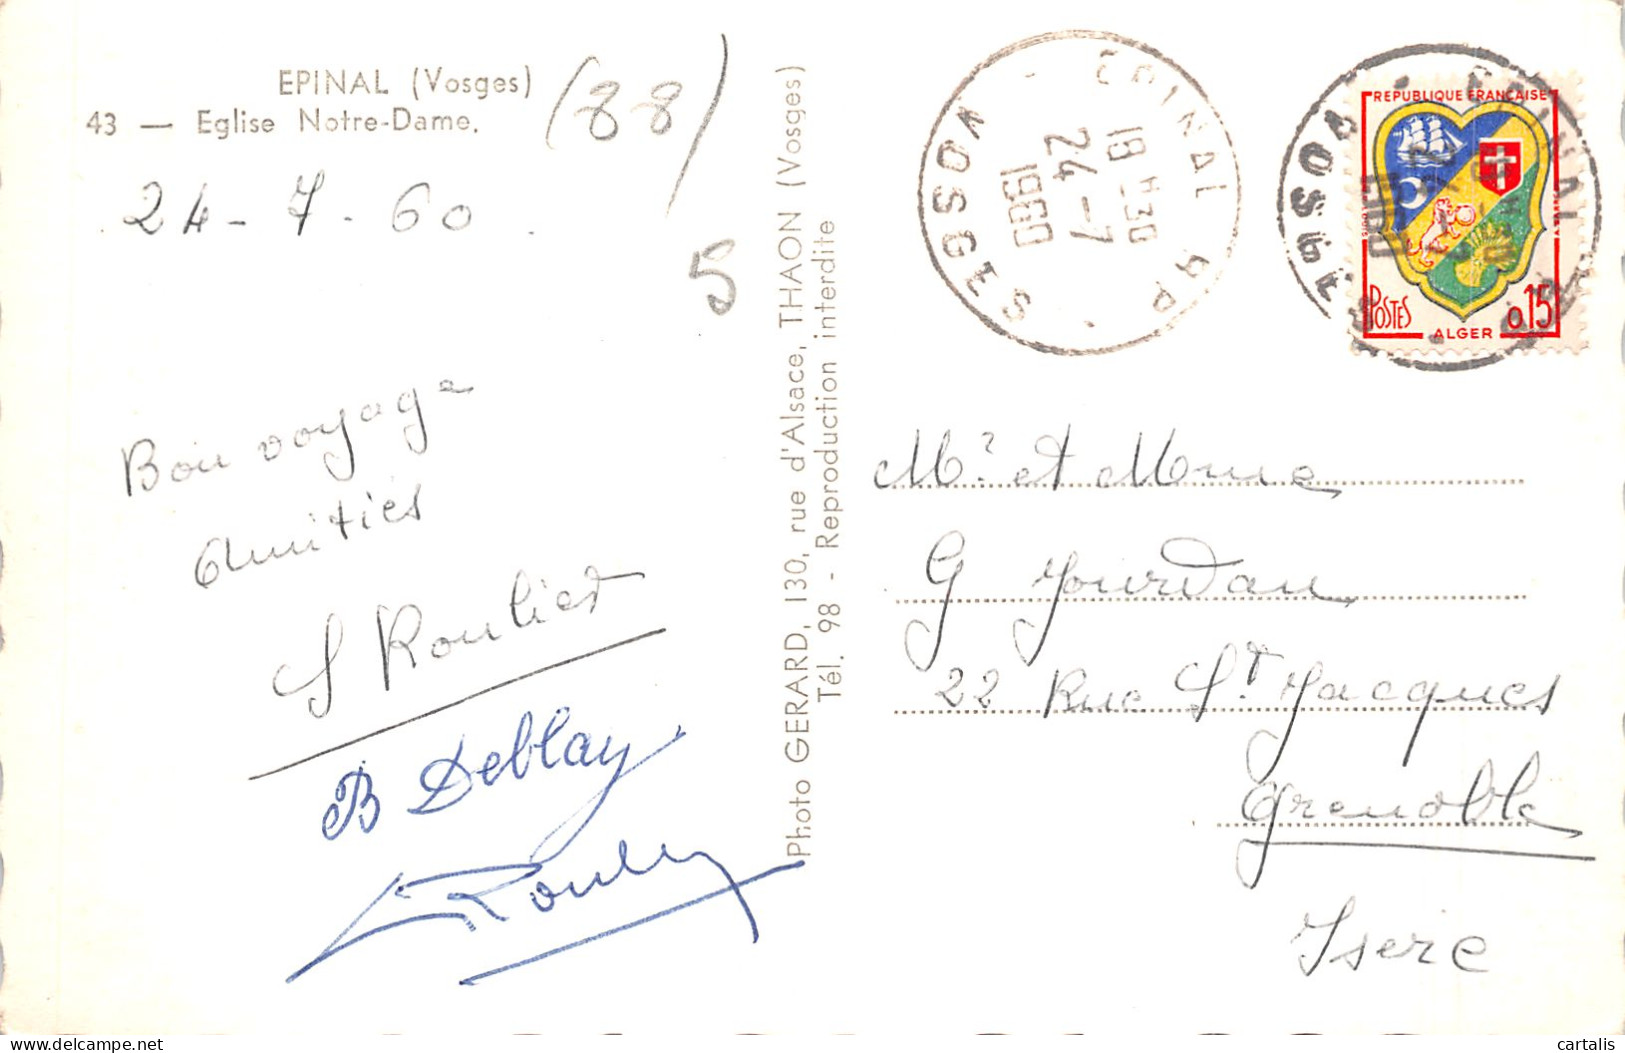 EPINAL (Vosges)
43 — Eglise Notre-Dame.
(88)
24-7-60.
5
Bon voyage
Amitiés
S Roulier
B Deblay
Photo GERARD, 130, rue d'Alsace, THAON (Vosges)
Tél. 98 - Reproduction interdite
EPINAL GP
18 H 30
24 - 7
1960
VOSGES
REPUBLIQUE FRANÇAISE
POSTES
ALGER
0,15
Mr et Mme
G Jourdan
22 Rue St Jacques
Grenoble
Isere
cartalis